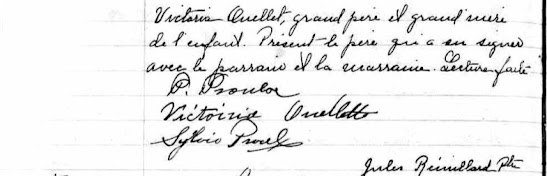 Victoria Ouellet, grand père et grand'mère
de l'enfant. Présent le père qui a su signer
avec le parrain et la marraine. Lecture faite
P. Proulx
Victoirie Ouellette
Sylvio
Jules Rémillard Ptre